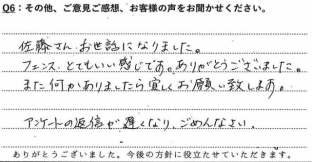 Q6：その他、ご意見ご感想、お客様の声をお聞かせください。
佐藤さん、お世話になりました。
フェンス、とてもいい感じです。ありがとうございました。
また何かありましたら宜しくお願い致します。
アンケートの返信が遅くなり、ごめんなさい。
ありがとうございました。今後の方針に役立たせていただきます。